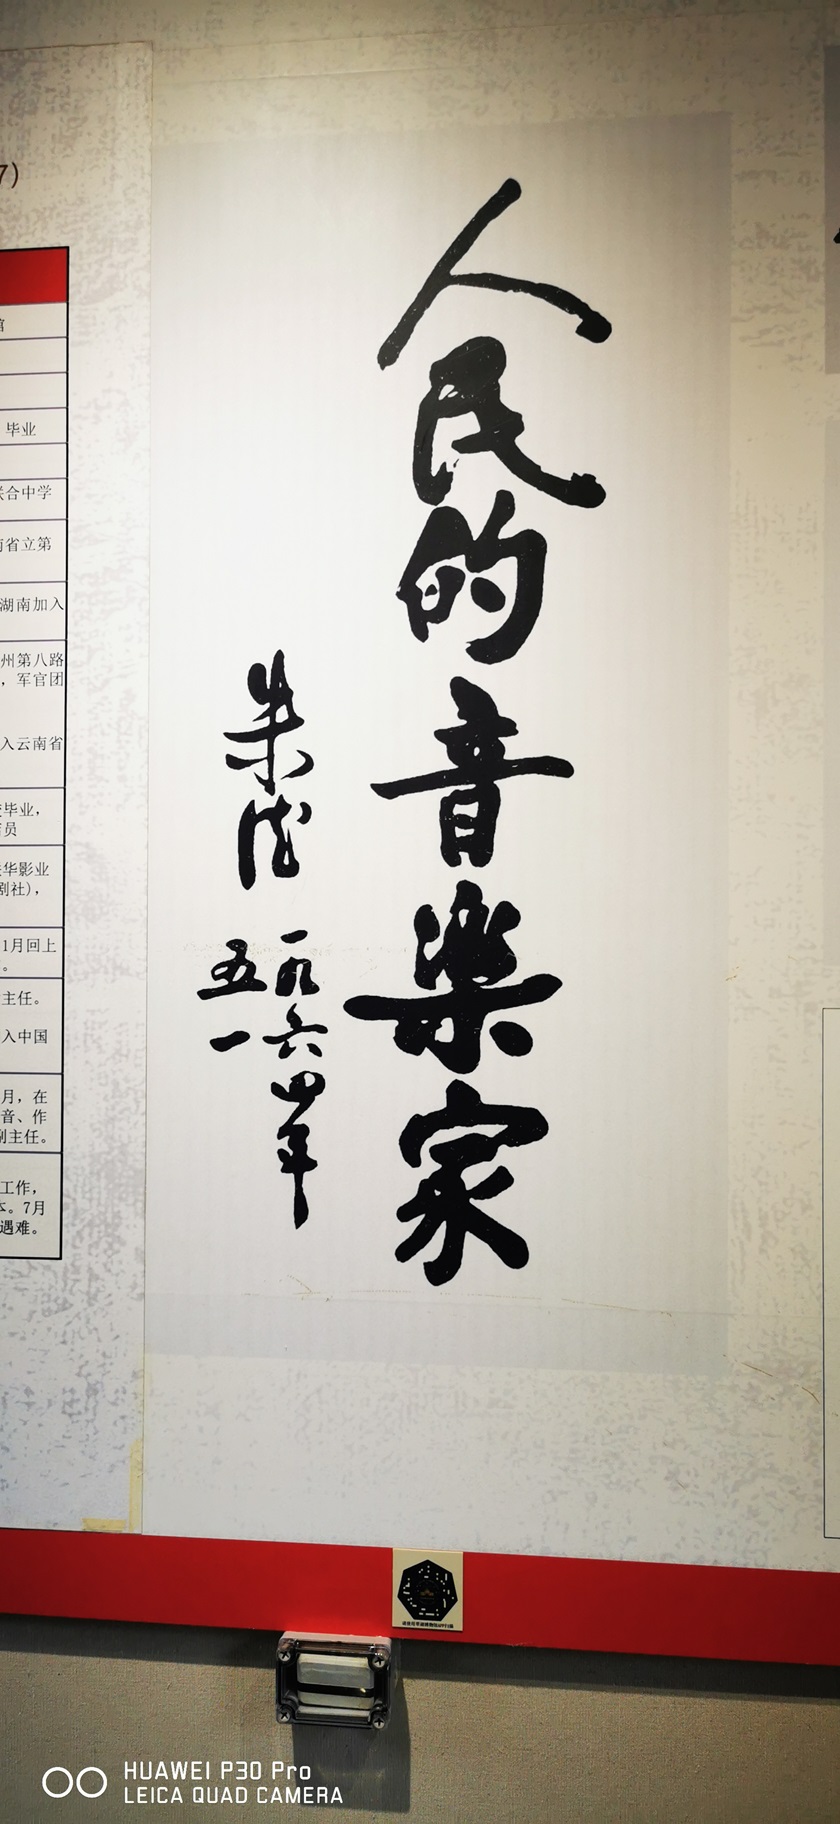 7)
馆
毕业
联合中学
南省立第
湖南加入
州第八路
，军官团
入云南省
毕业，
员
华影业
剧社)，
1月回上
。
主任。
入中国
月，在
音、作
副主任。
工作，
本。7月
遇难。
人民的音楽家
朱德
一九六四年
五一
HUAWEI P30 Pro
LEICA QUAD CAMERA